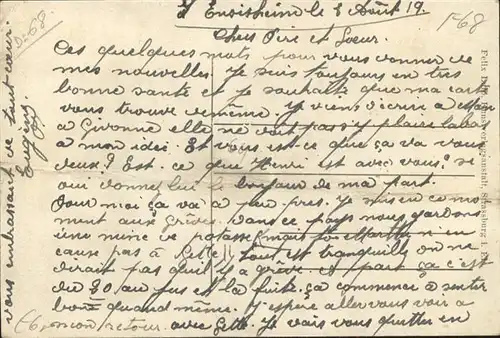 Ensisheim le 8 Août 19.
Chers Père et Soeur.
Ces quelques mots pour vous donner de
mes nouvelles. Je suis toujours en très
bonne santé et je souhaite que ma carte
vous trouve de même. Y viens d'écrire à
à Givonne elle ne doit pas s'y plaire labas
à mon idée. Et vous est-ce que ça va vous
deux? Est-ce que Henri est avec vous, si
oui donnez lui le bonjour de ma part.
Pour moi ça va à peu près. Je suis en ce mo
ment aux grèves. Dans ce pays nous gardons
une mine de potasse mais
cause pas à tout est tranquille on ne
dirait pas qu'il y a grève. Et part ça c'est
du 80 au jus et la fuite. Ça commence à sentir
bon quand même. J'espère aller vous voir à
mon retour. avec Je vais vous quitter en
vous embrassant de tout coeur.
Eugène
D-68
F68
Felix Strassburg i. E.